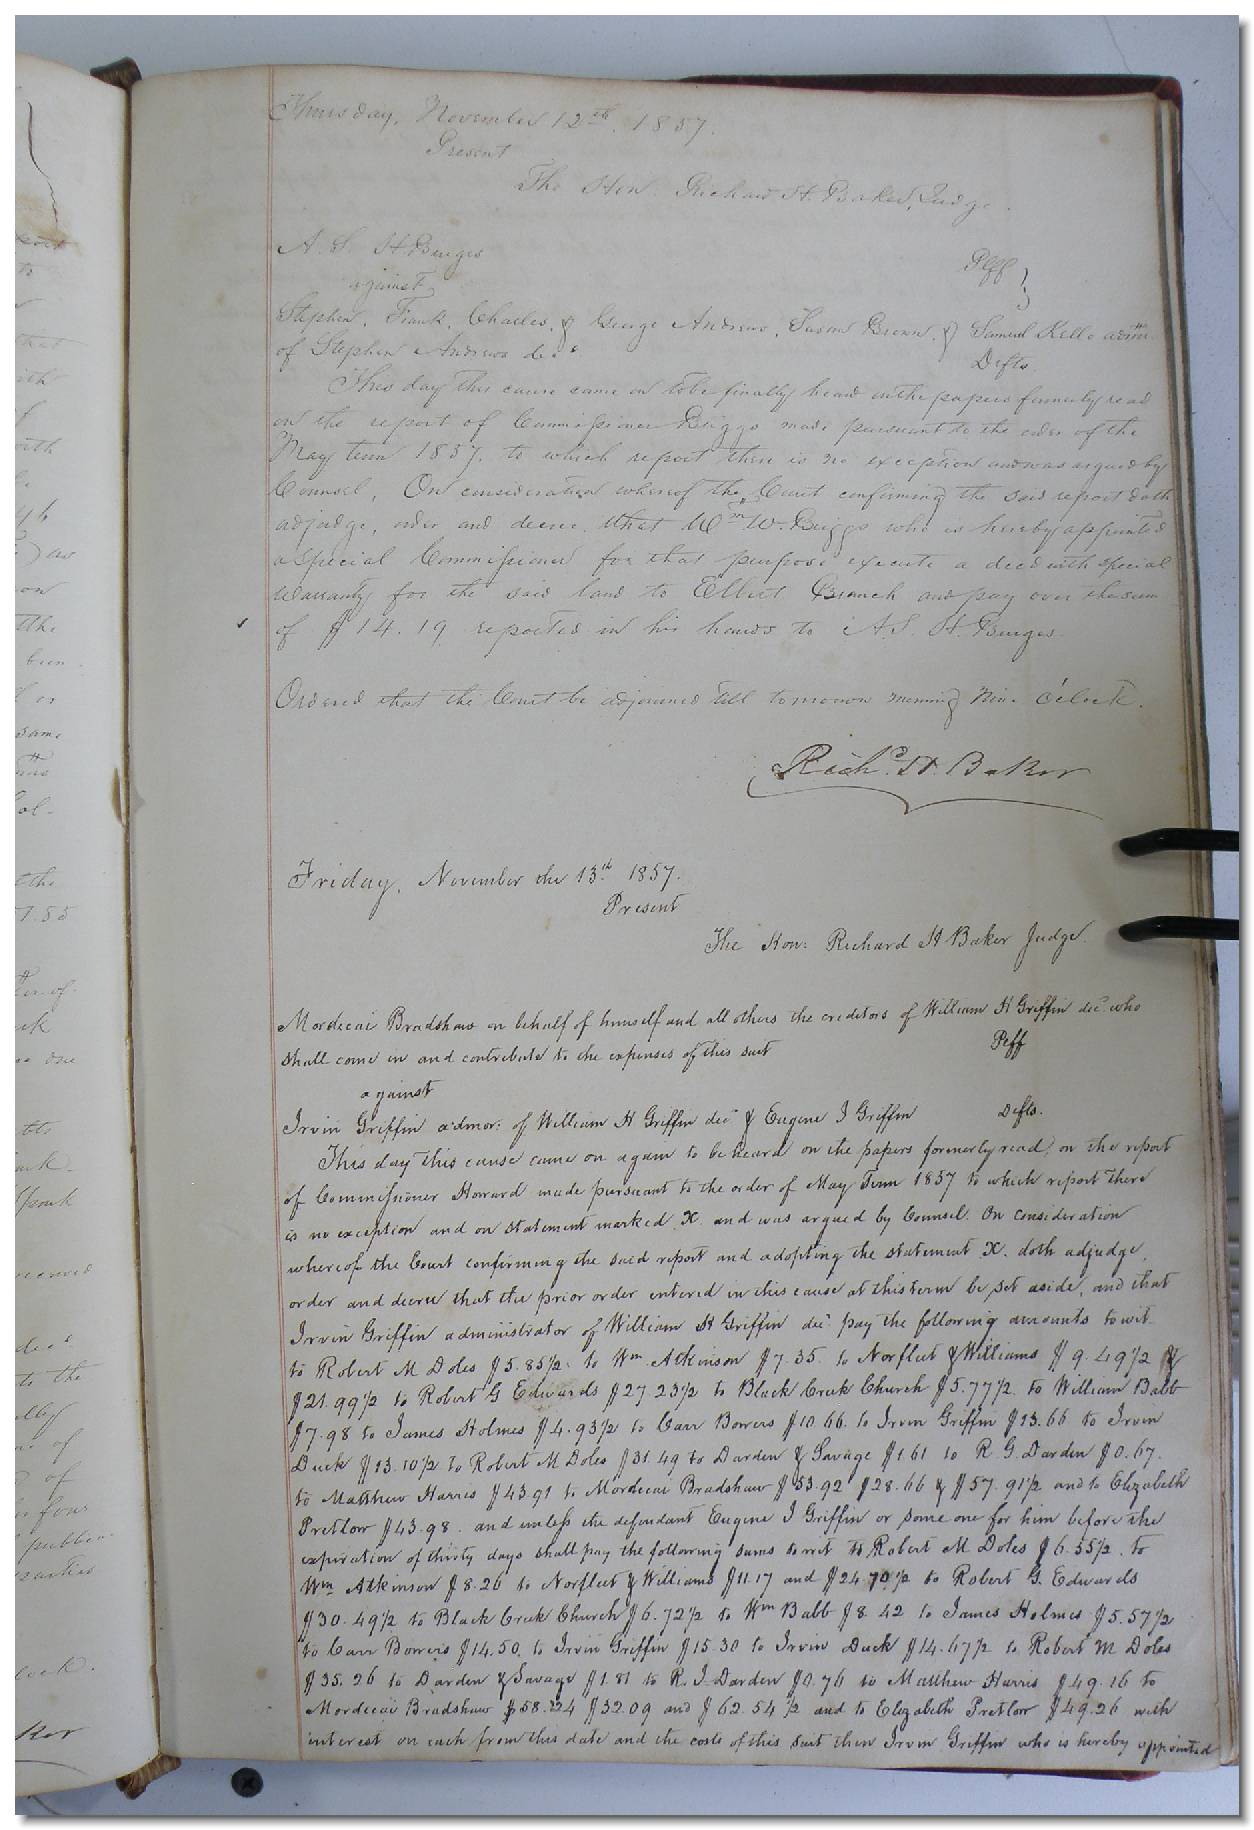 Thursday, November 12th. 1857.
Present
The Hon. Richard H. Baker, Judge.
A. S. H Burges
Plff }
against
Stephen, Frank, Charles, & George Andrews, Susan Brown, & Samuel Kello admr.
of Stephen Andrews decd
Defts.
This day this cause came on to be finally heard on the papers formerly read
on the report of Commissioner Briggs made pursuant to the order of the
May term 1857, to which report there is no exception and was argued by
Counsel, On consideration whereof the Court confirming the said report doth
adjudge, order and decree, that Wm W. Briggs who is hereby appointed
a special Commissioner for that purpose execute a deed with special
warranty for the said land to Elbert Branch and pay over the sum
of $14.19 reported in his hands to A. S. H. Burges.
Ordered that the Court be adjourned till tomorrow morning Nine o'clock.
Richd. H. Baker
Friday, November the 13th 1857.
Present
The Hon: Richard H Baker Judge.
Mordecai Bradshaw on behalf of himself and all others the creditors of William H Griffin decd. who
shall come in and contribute to the expenses of this suit
Plff
against
Irvin Griffin admor: of William H Griffin decd & Eugene I Griffin
Defts.
This day this cause came on again to be heard on the papers formerly read, on the report
of Commissioner Howard made pursuant to the order of May Term 1857 to which report there
is no exception and on statement marked X. and was argued by Counsel. On consideration
whereof the Court confirming the said report and adopting the statement X. doth adjudge,
order and decree that the prior order entered in this cause at this term be set aside, and that
Irvin Griffin administrator of William H Griffin decd. pay the following amounts to wit.
to Robert M Doles $5.85 1/2. to Wm. Atkinson $7.35. to Norfleet & Williams $9.49 1/2 &
$21.99 1/2 to Robert G Edwards $27.23 1/2 to Black Creek Church $5.77 1/2. to William Babb
$7.98 to James Holmes $4.93 1/2 to Carr Bowers $10.66. to Irvin Griffin $13.66 to Irvin
Duck $13.10 1/2 to Robert M Doles $31.49 to Darden & Savage $1.61 to R. G. Darden $0.67.
to Matthew Harris $43.91 to Mordecai Bradshaw $53.92 $28.66 & $57.91 1/2 and to Elizabeth
Pretlow $43.98. and unless the defendant Eugene I Griffin or some one for him before the
expiration of thirty days shall pay the following sums to wit to Robert M Doles $6.55 1/2. to
Wm Atkinson $8.26 to Norfleet & Williams $11.17 and $24.70 1/2 to Robert G. Edwards
$30.49 1/2 to Black Creek Church $6.72 1/2 to Wm Babb $8.42 to James Holmes $5.57 1/2
to Carr Bowers $14.50. to Irvin Griffin $15.30 to Irvin Duck $14.67 1/2 to Robert M Doles
$35.26 to Darden & Savage $1.81 to R. I. Darden $0.76 to Matthew Harris $49.16 to
Mordecai Bradshaw $58.24 $32.09 and $62.54 1/2 and to Elizabeth Pretlow $49.26 with
interest on each from this date and the costs of this suit then Irvin Griffin who is hereby appointed